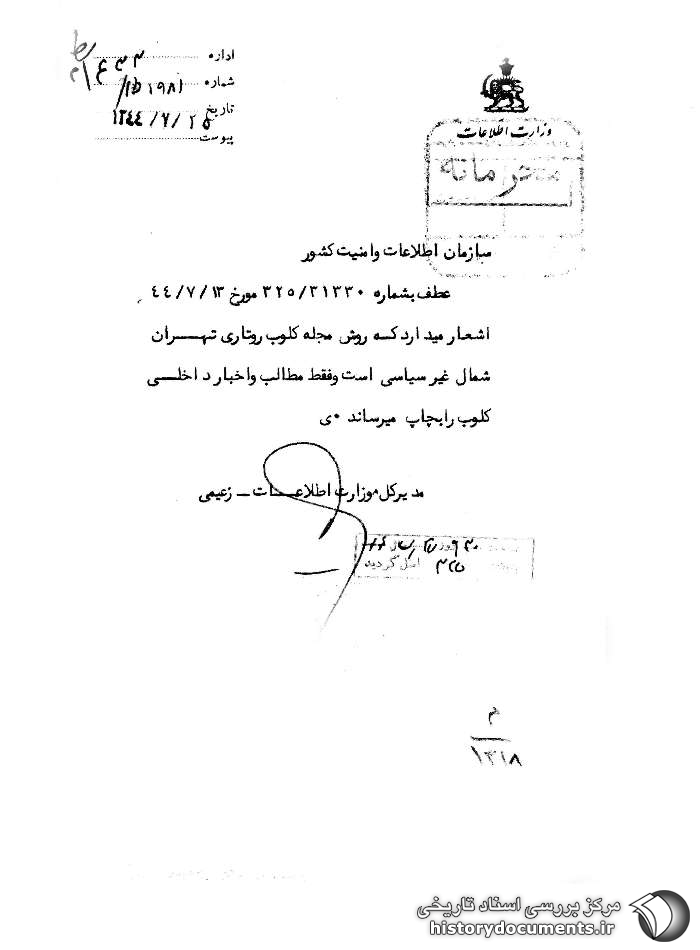 اداره
شماره
تاریخ ۱۳۴۴/۷/۲۵
پیوست
وزارت اطلاعات
محرمانه
سازمان اطلاعات وامنیت کشور
عطف بشماره ۳۲۵/۳۱۳۳۰ مورخ ۴۴/۷/۱۳
اشعار میدارد که روش مجله کلوب روتاری تهران
شمال غیر سیاسی است وفقط مطالب واخبار داخلی
کلوب رابچاپ میرساند ی
مدیرکل موزارت اطلاعات ـ زعیمی
م
۱۳۱۸
مرکز بررسی اسناد تاریخی
historydocuments.ir